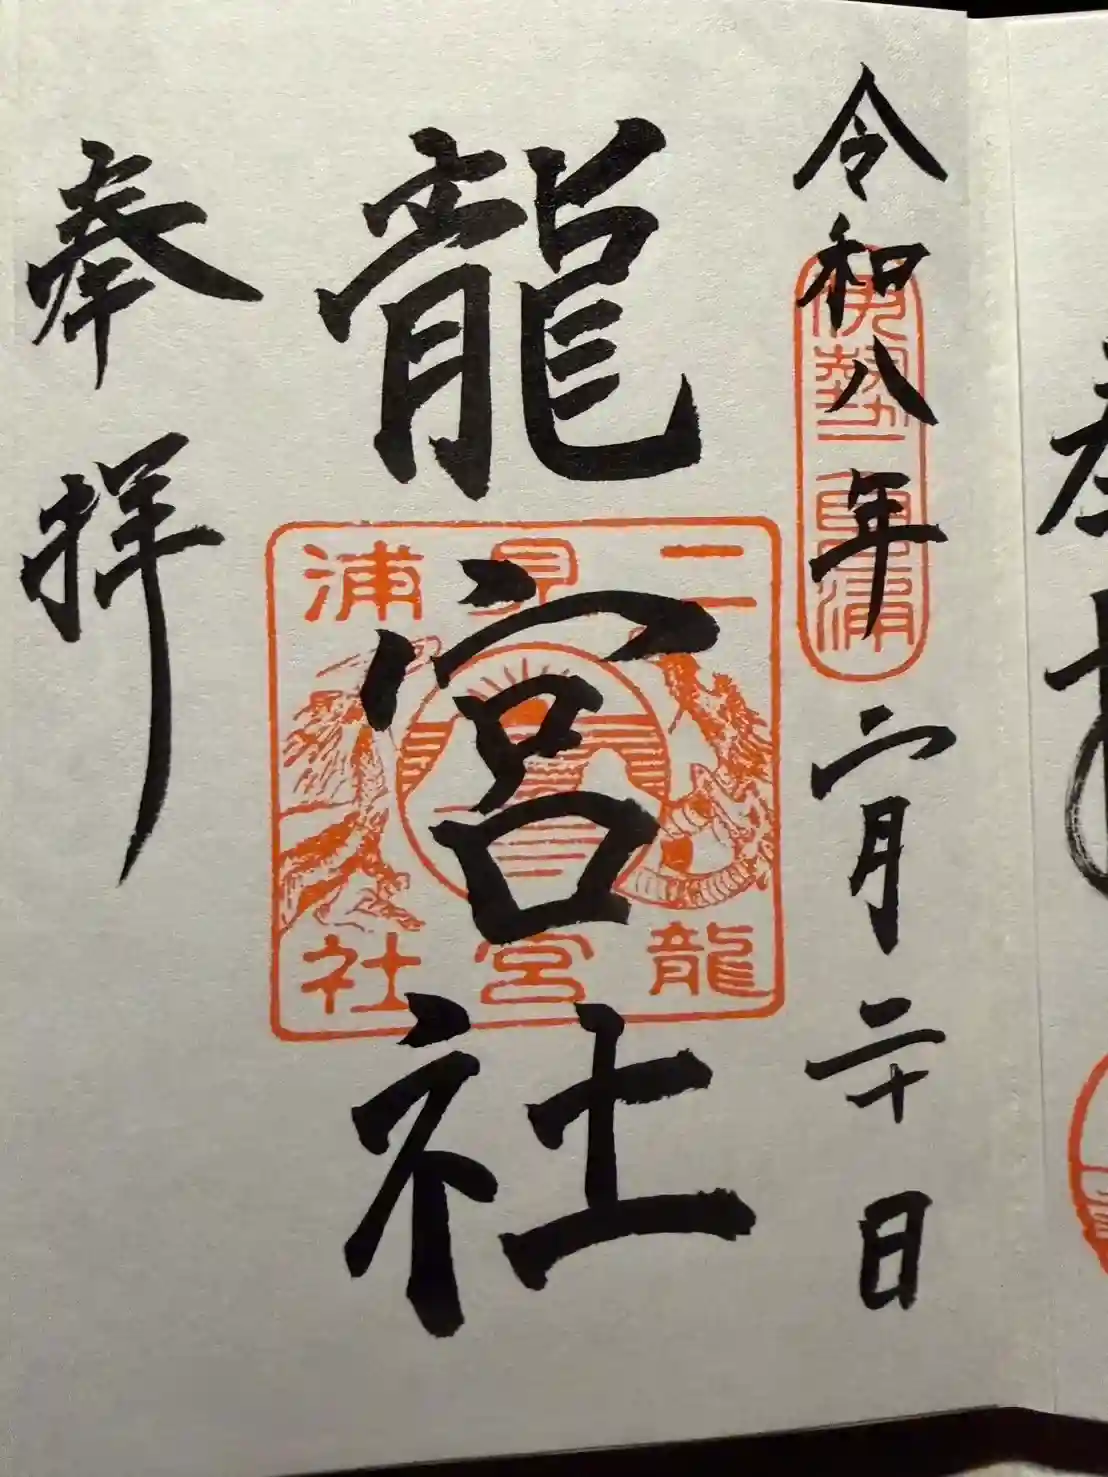 令和八年二月二十日
伊勢二見浦
龍宮社
二見浦
龍宮社
奉拝